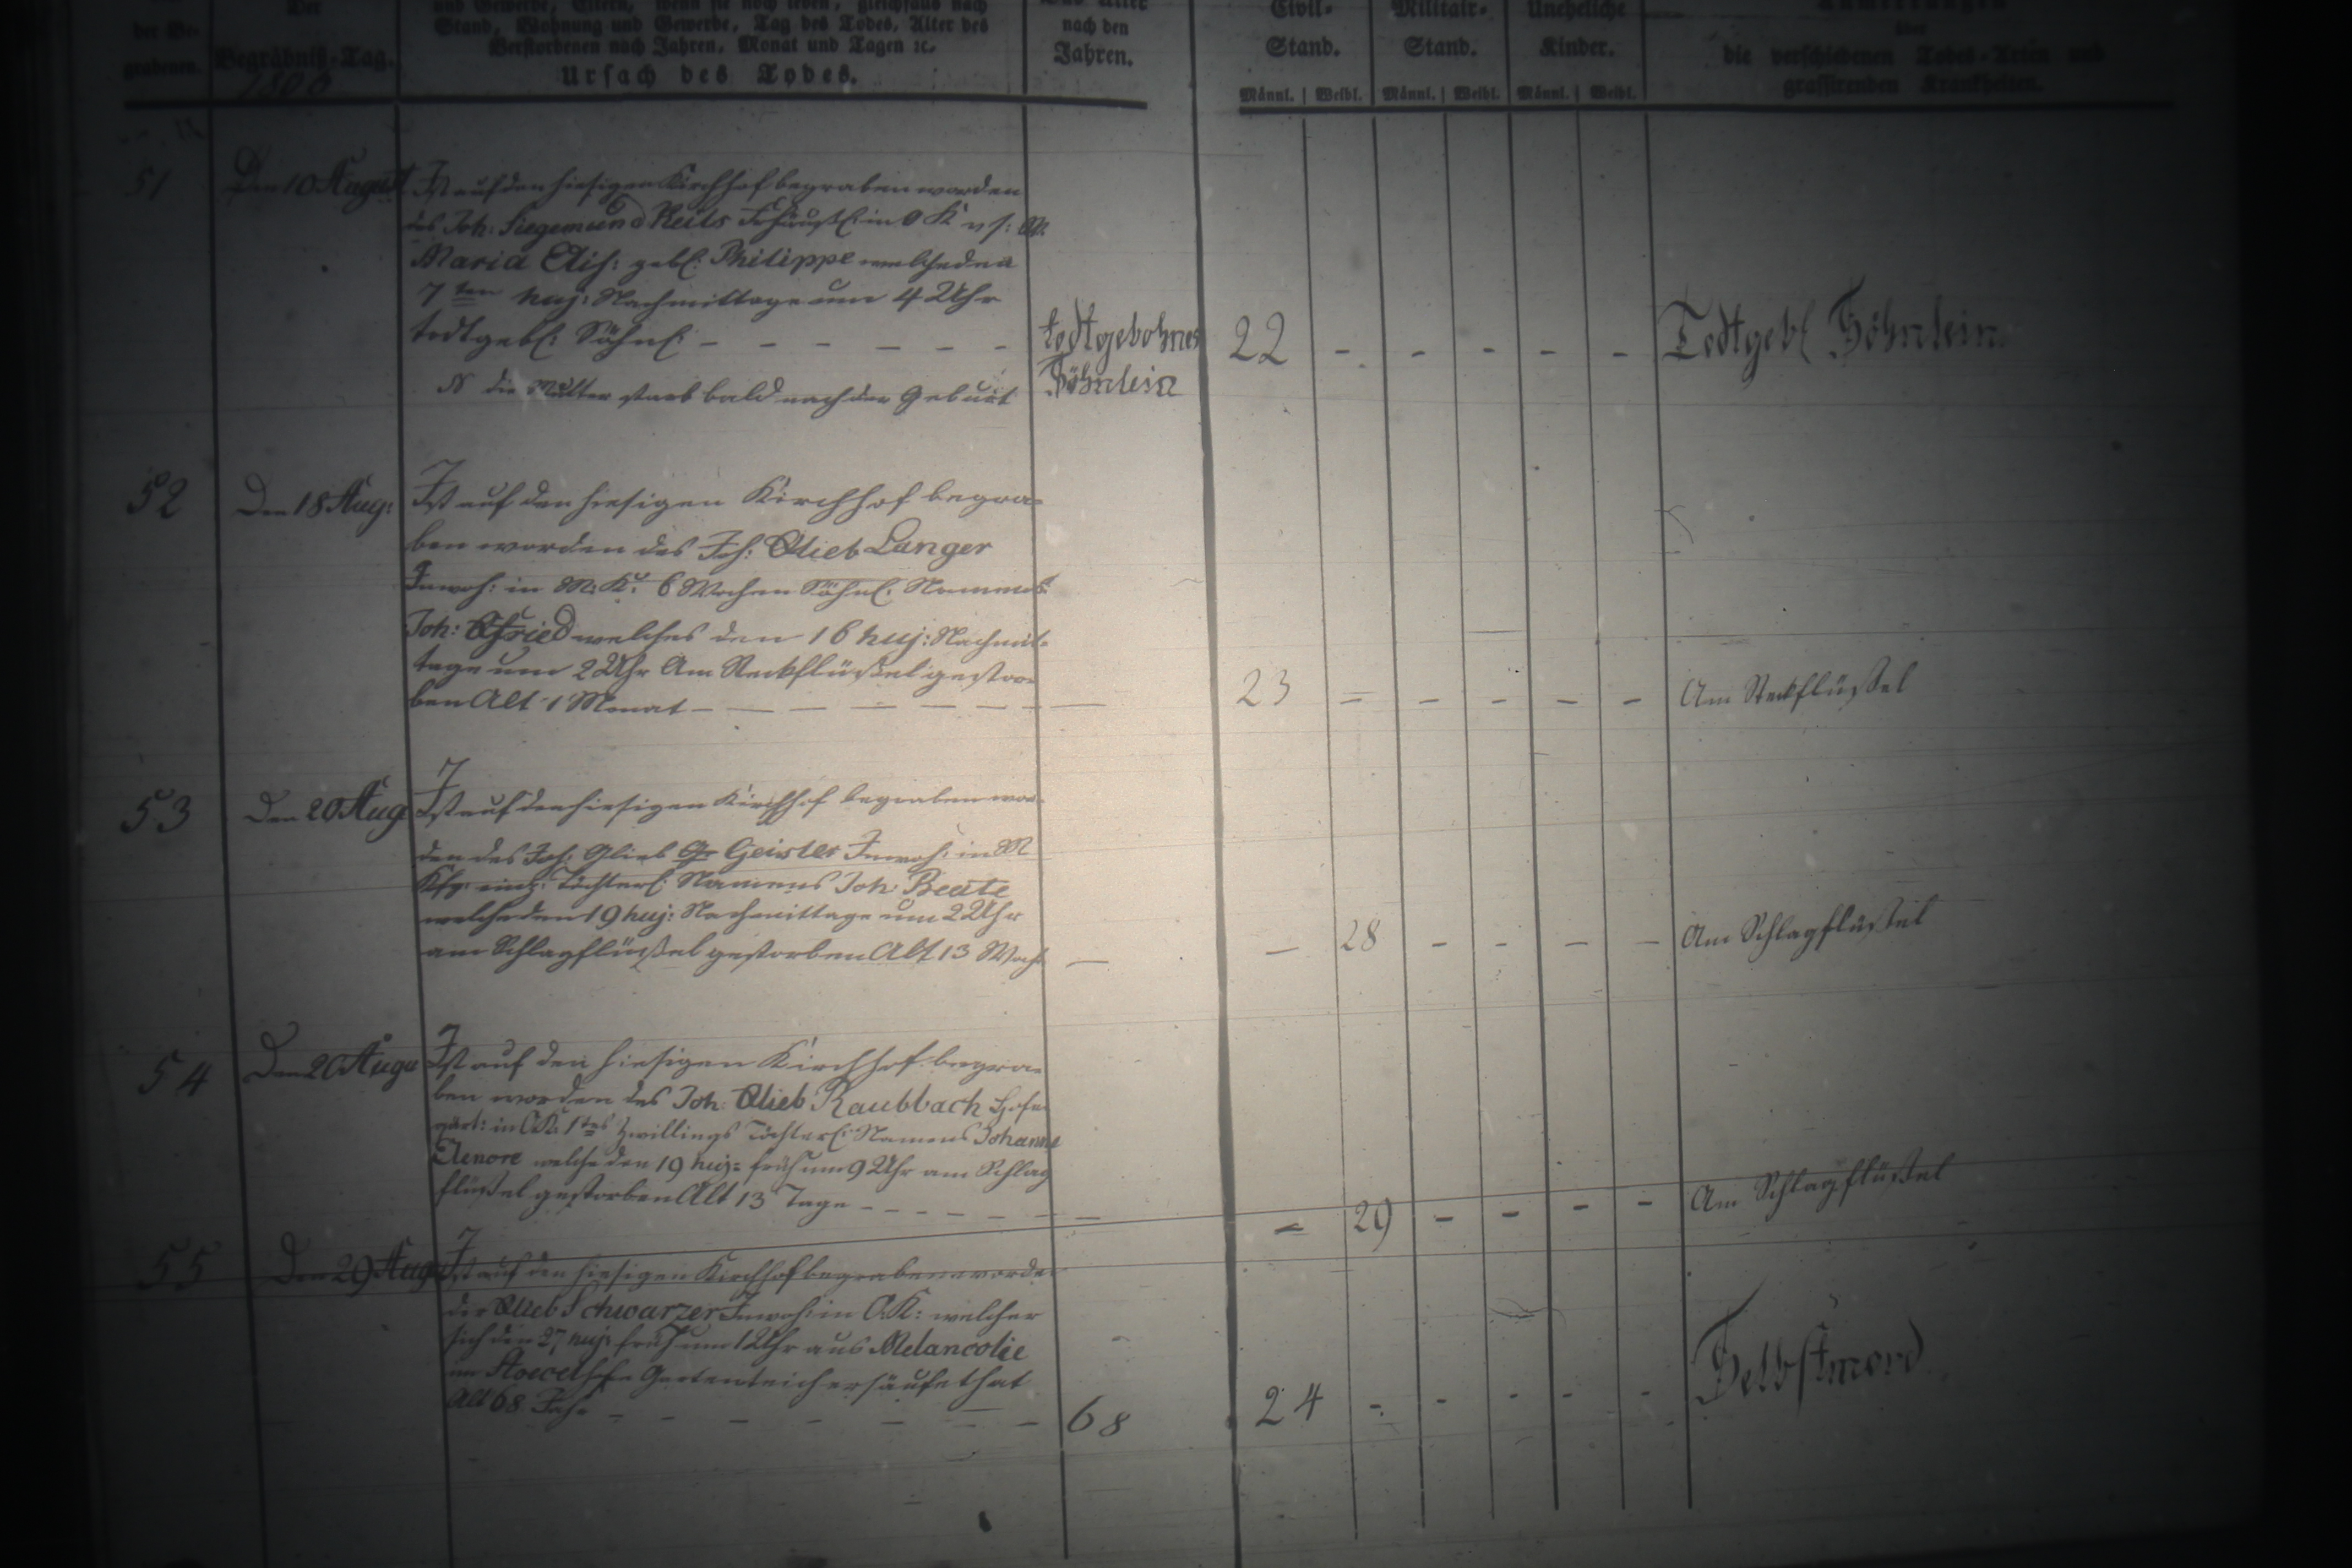 Der
der Be-
grabenen.
Begräbniß-Tag.
und Gewerbe, Eltern, wenn sie noch leben, gleichfals nach
Stand, Wohnung und Gewerbe, Tag des Todes, Alter des
Verstorbenen nach Jahren, Monat und Tagen ꝛc.
Ursach des Todes.
Das Alter
nach den
Jahren.
Civil-
Stand.
Militair-
Stand.
Uneheliche
Kinder.
Männl. | Weibl. Männl. | Weibl. Männl. | Weibl.
Anmerkungen
über
die verschiedenen Todes-Arten und
grassirenden Krankheiten.
51 Den 10 August Ist auf den hiesigen Kirchhof begraben worden
des Joh: Siegemund in O K
Maria Elis: gebl: Philippe welche den
7ten huj: Nachmittage um 4 Uhr
todtgebl: Söhnl: - - - - - -
todtgebohnes
Söhnlein
22 - - - - - Todtgebl Söhnlein
N die Mutter starb bald nach der Geburt
52 Den 18 Aug: Ist auf den hiesigen Kirchhof begra=
ben worden des Joh: Glieb Langer
Inwoh: in M: K: 6 Wochen Söhnl: Namens
Joh: Gfried welches den 16 huj: Nachmit=
tage um 2 Uhr Am Steckflüßel gestor=
ben Alt 1 Monat - - - - - -
23 = - - - - Am Steckflüßel
53 Den 20 Aug Ist auf den hiesigen Kirchhof begraben wor=
den des Joh: Glieb Geisler Inwoh: in M
einz: Töchterl: Namens Joh: Beate
welche den 19 huj: Nachmittage um 2 Uhr
am Schlagflüßel gestorben Alt 13 Woch
- 28 - - - - Am Schlagflüßel
54 Den 20 Augu Ist auf den hiesigen Kirchhof begra=
ben worden des Joh: Glieb Raubbach Hofe
gärt: in O.K: 1tes Zwillings Töchterl: Namens Johanne
Elenore welche den 19 huj: früh um 9 Uhr am Schlag
flüßel gestorben Alt 13 Tage - - - - - -
- 29 - - - - Am Schlagflüßel
55 Den 29 Aug Ist auf den hiesigen Kirchhof begraben worde
der Glieb Schwarzer Inwoh: in O.K: welcher
sich den 27 huj: früh um 1 Uhr aus Melancolie
im Gartenteich ersäufet hat
Alt 68 Jah - - - - - -
68 24 - - - - - Selbstmord